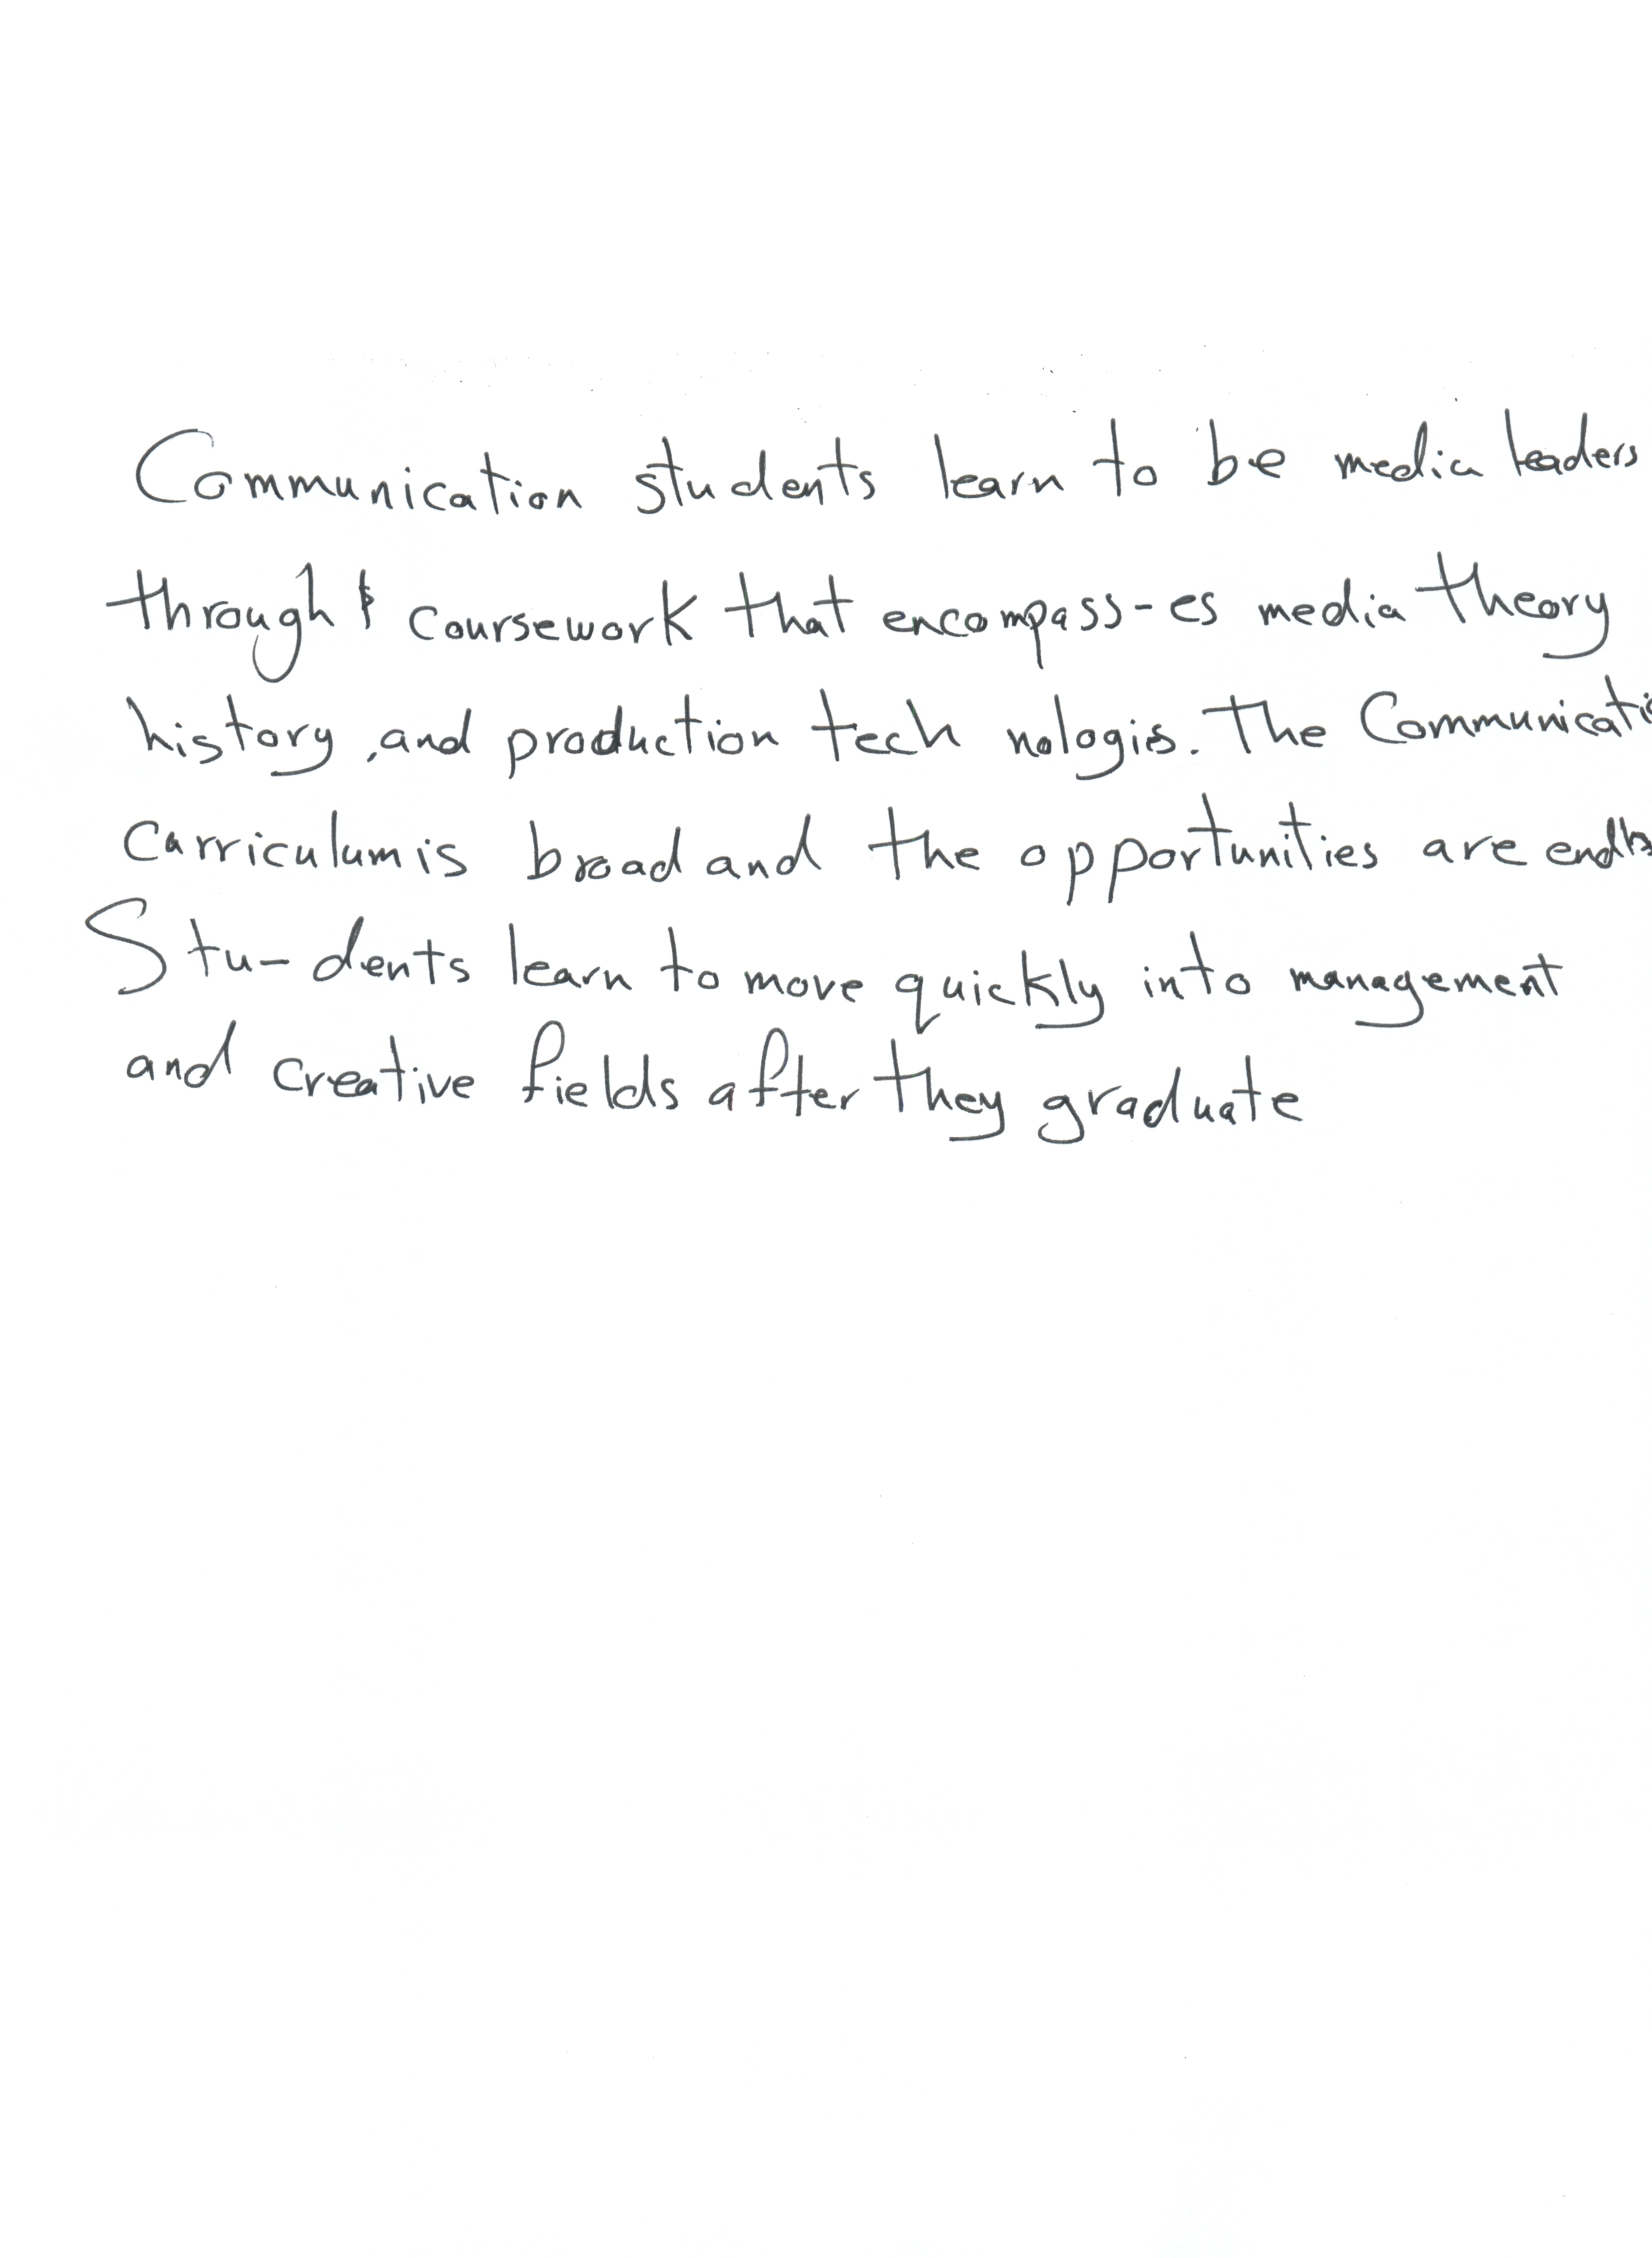 Communication students learn to be media leaders
through coursework that encompass-es media theory
history ,and production tech nologis. The Communicati
Carriculum is broad and the opportunities are
Stu-dents learn to move quickly into management
and creative fields after they graduate